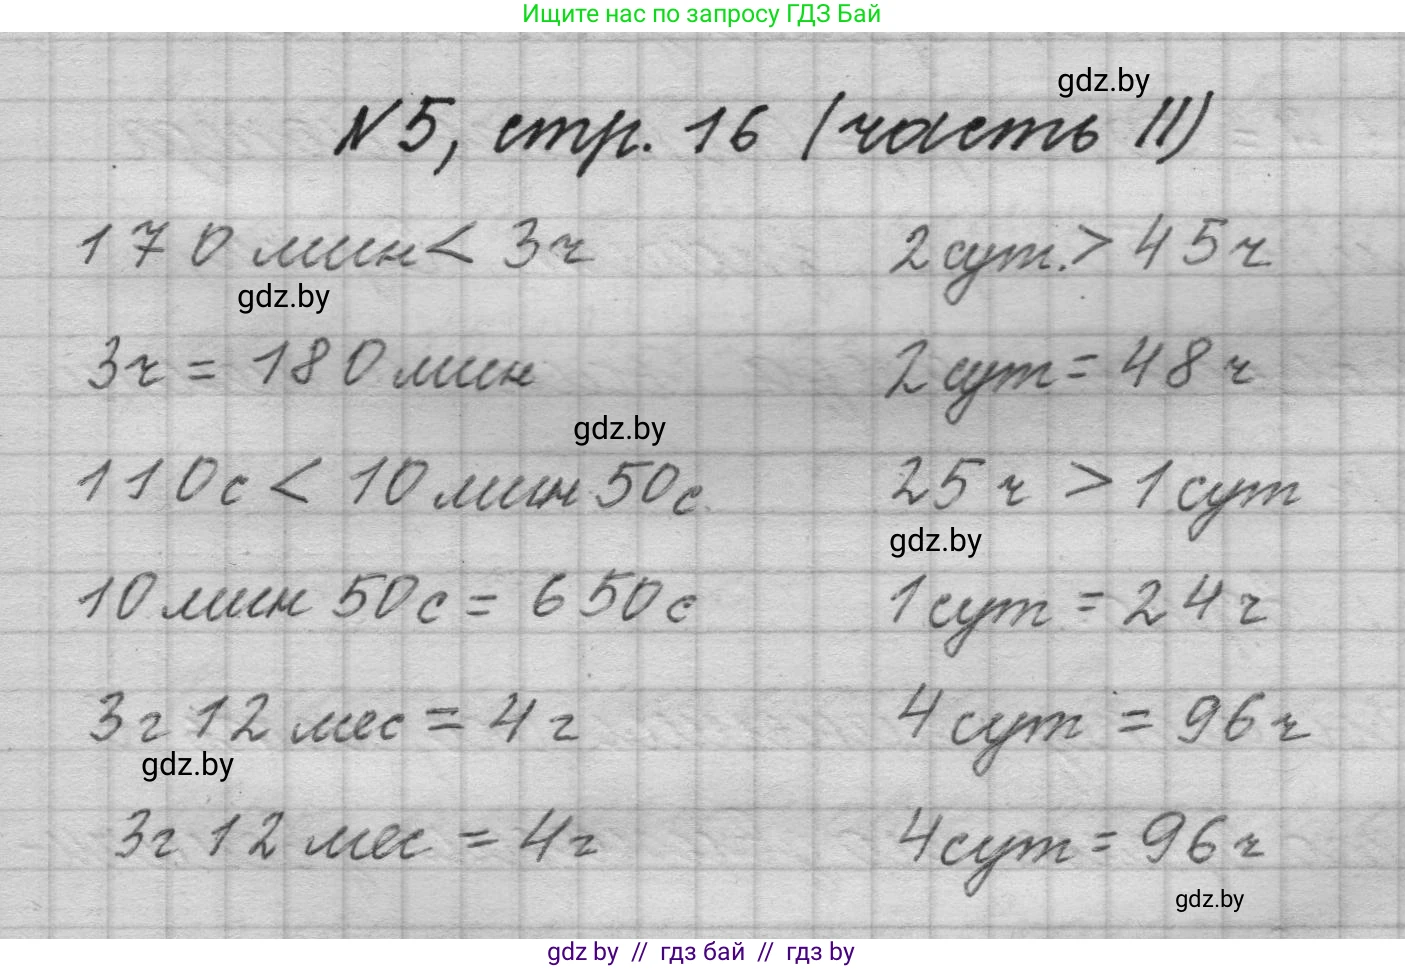 Ищите нас по запросу ГДЗ Бай
gdz.by
№5, стр. 16 (часть II)
170 мин < 3ч 2 сут. > 45ч
gdz.by
3ч = 180 мин 2 сут = 48 ч
gdz.by
110с < 10 мин 50с. 25 ч > 1 сут
gdz.by
10 мин 50с = 650с 1 сут = 24 ч
3г 12 мес = 4г 4 сут = 96ч
gdz.by
3г 12 мес = 4г 4 сут = 96ч
gdz.by
gdz by // гдз бай // гдз by